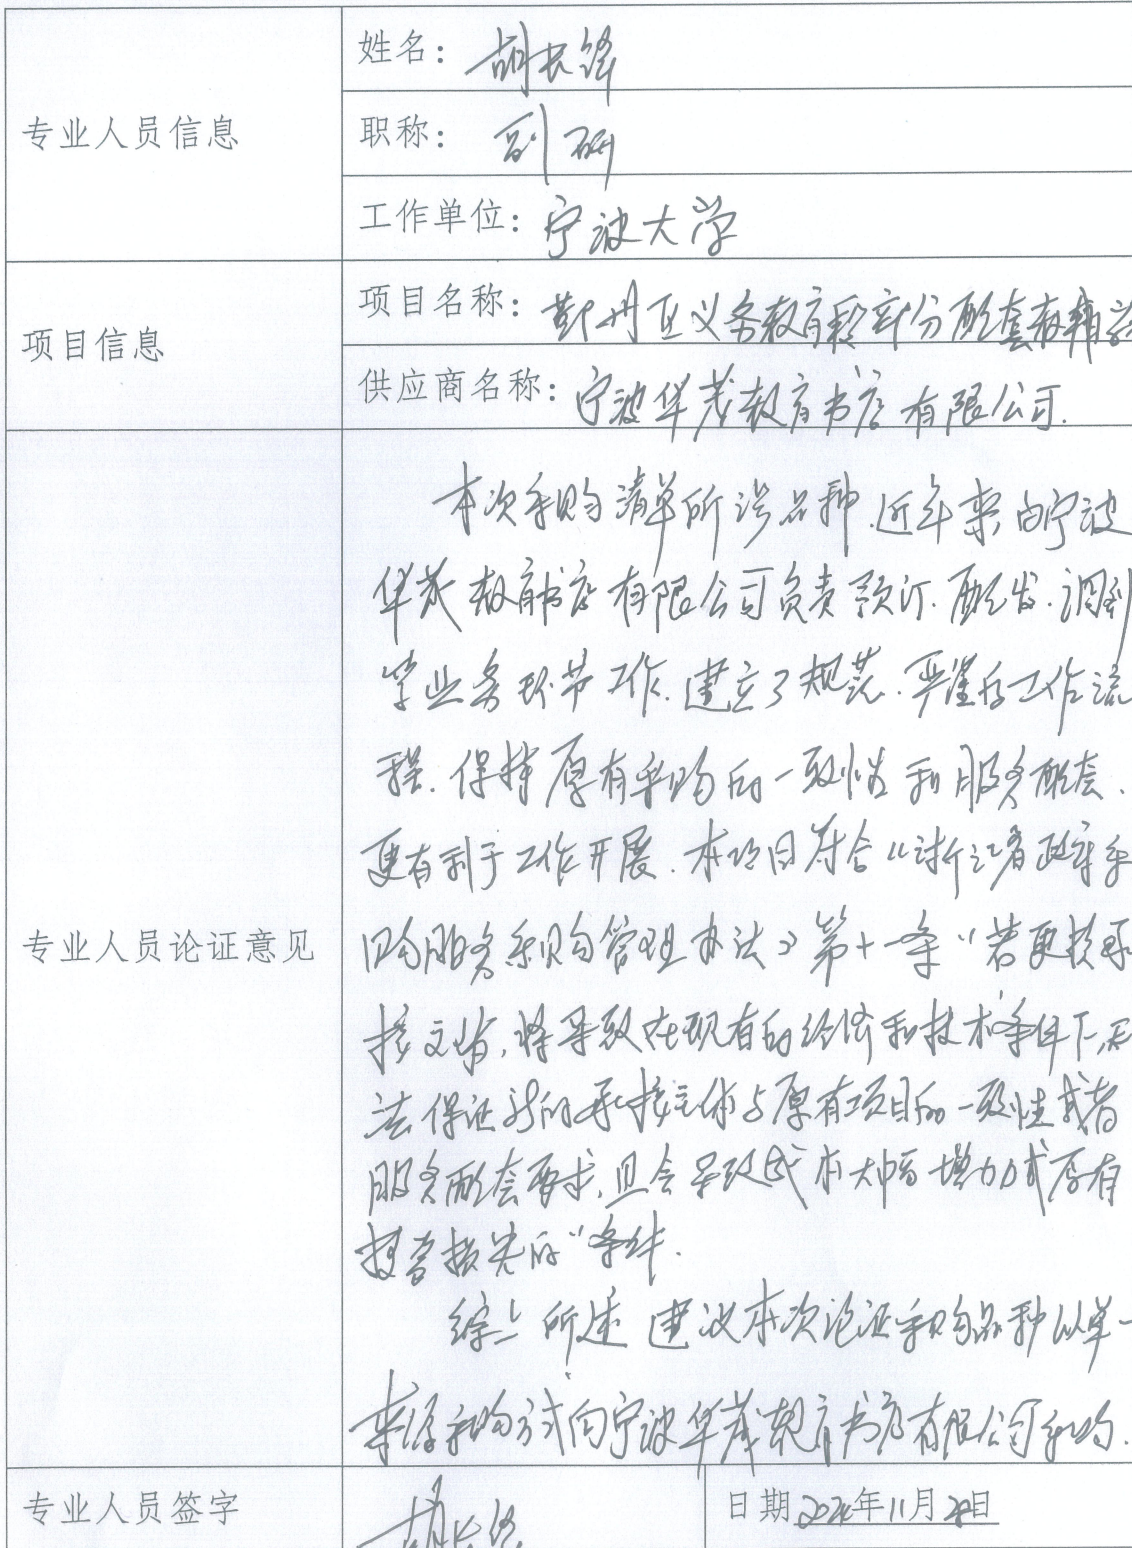 专业人员信息
姓名：胡长锋
职称：副研
工作单位：宁波大学
项目信息
项目名称：鄞州区义务教育段部分配套教辅
供应商名称：宁波华茂教育书店有限公司.
专业人员论证意见
本次采购清单所涉品种.近年来由宁波
华茂教育书店有限公司负责预订.配发.调剂
等业务环节工作.建立了规范.严谨的工作流
程.保持原有采购的一致性和服务配套.
更有利于工作开展.本项目符合《浙江省政府采
购服务采购管理办法》第十一条"若更换承
接主体,将导致在现有的经济和技术条件下,无
法保证新的承接主体与原有项目的一致性或者
服务配套要求,且会导致成本大幅增加或原有
投资损失的"条件.
综上所述 建议本次论证采购品种以单一
来源采购方式向宁波华茂教育书店有限公司采购.
专业人员签字
胡长锋
日期 年11月 日